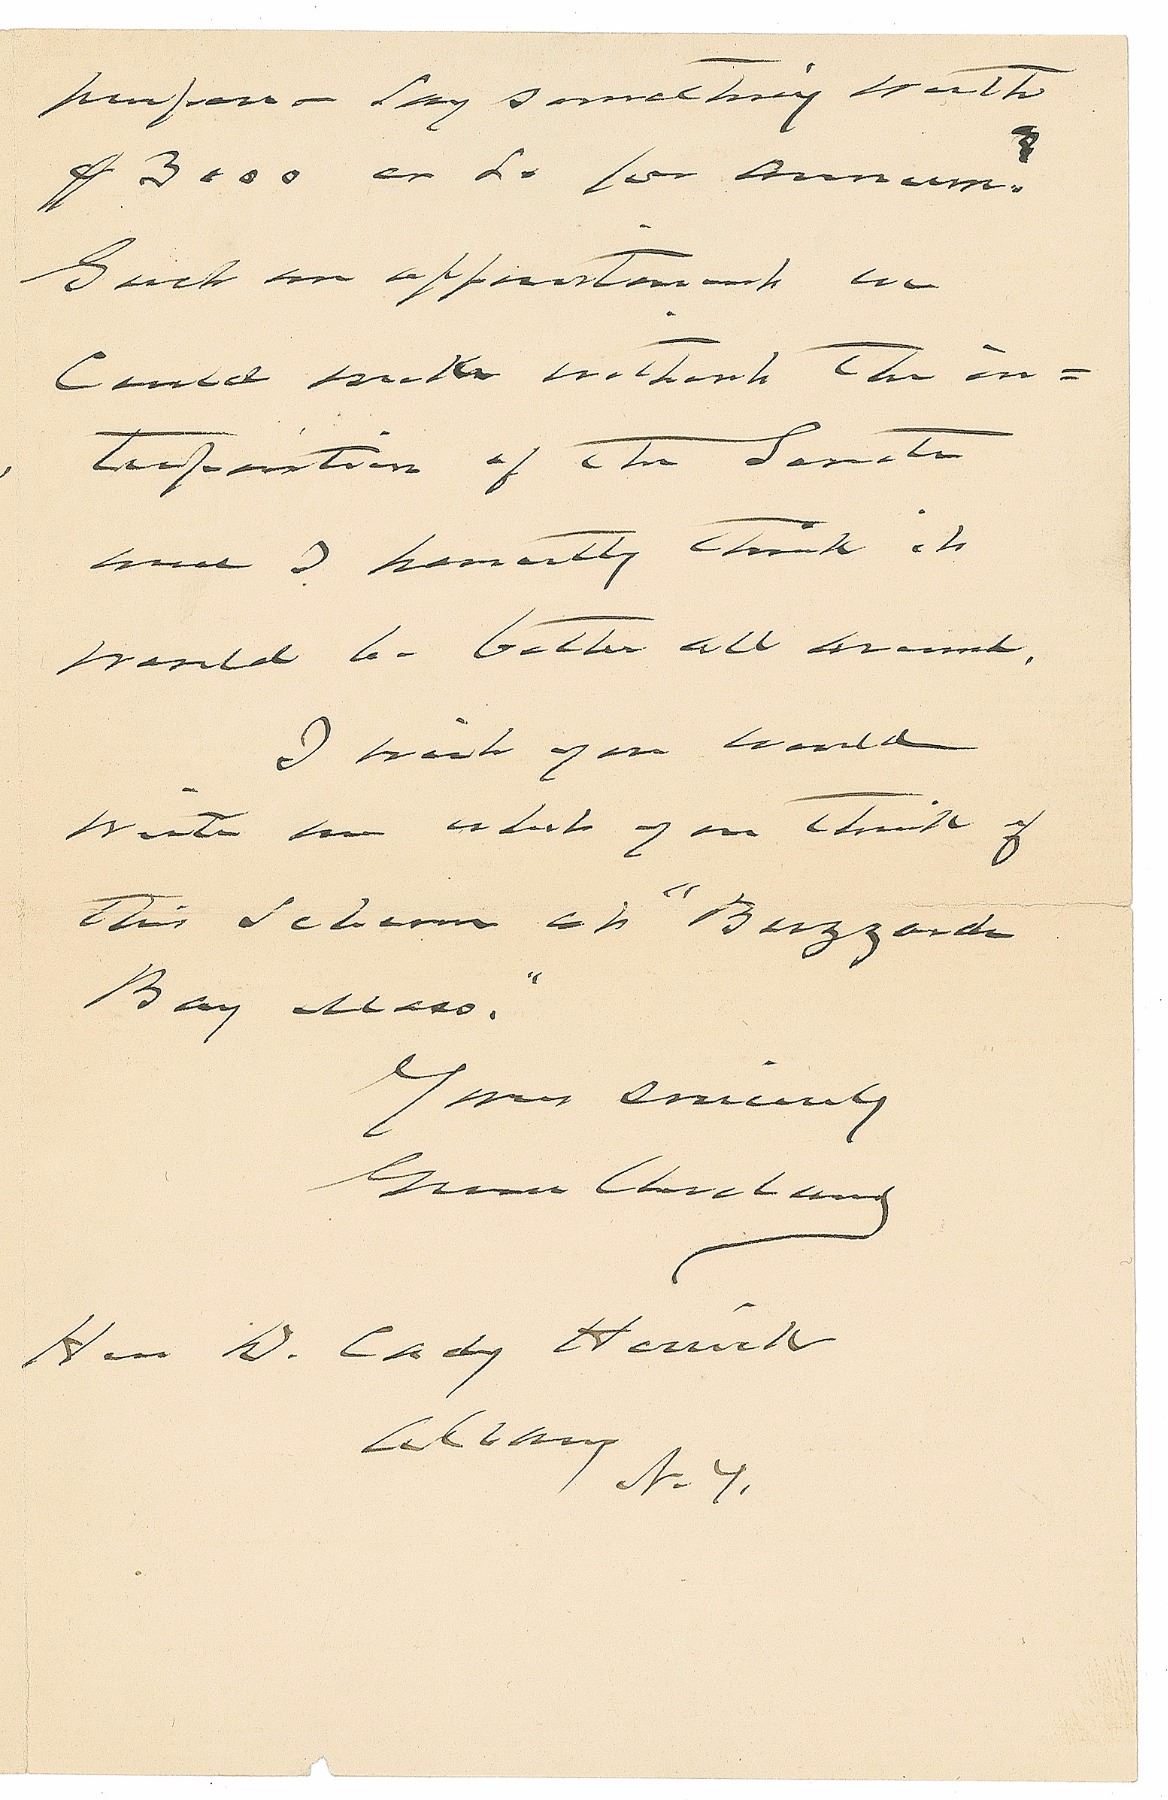 purpose — say something worth
$3000 or so per annum?
Such an appointment we
could make without the in=
terposition of the Senate
and I honestly think it
would be better all around.
I wish you would
write me what you think of
this scheme at "Buzzards
Bay Mass."
Yours sincerely
Grover Cleveland
Hon D. Cady Herrick
Albany
N.Y.